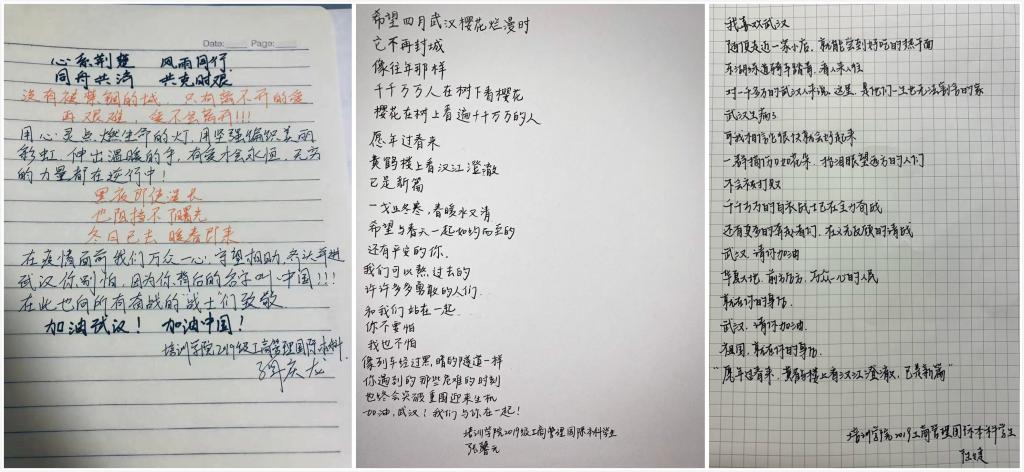 Date: Page:
心系荆楚 风雨同行
同舟共济 共克时艰
没有被禁锢的城，只有离不开的爱
再艰难，爱不会离开!!!
用心灵点燃生命的灯，用坚强编织美丽
彩虹，伸出温暖的手，有爱才会永恒，无穷
的力量都在逆行中!
黑夜即使漫长
也阻挡不了曙光
冬日已去 暖春即来
在疫情面前我们万众一心，守望相助，共认
武汉你别怕，因为你背后的名字叫中国!!!
在此也向所有奋战的"战士"们致敬
加油武汉! 加油中国!
培训学院2019级工商管理国际本科
庆龙
希望四月武汉樱花烂漫时
它不再封城
像往年那样
千千万万人在树下看樱花
樱花在树上看遍千千万万的人
愿年过春来
黄鹤楼上看汉江澄澈
已是新篇
一戈止冬寒，春暖水又清
希望与春天一起如约而至的
还有平安的你.
我们可以熬过去的
许许多多勇敢的人们.
和我们站在一起.
你不要怕
我也不怕
像列车经过黑暗的隧道一样
你遇到的那些危难的时刻
也终会突破重围迎来生机
加油，武汉！我们与你在一起！
培训学院2019级工商管理国际本科学生
张馨元
我喜欢武汉
随便走近一家小店，就能尝到好吃的热干面
东湖绿道骑车踏青，看人来人往
对一千多万的武汉人来说，这里，是他们一生也无法割舍的家
武汉生病了
可我相信它很快就会好起来
一群拥有如花, 含泪眺望远方的人们
不会被打败
千千万万的白衣战士已在全力奋战
还有更多的奔赴者们，在义无反顾的请战
武汉，请你加油
华夏大地，前方后方，万众一心的人民
就在你的身后.
武汉，请你加油.
祖国，就在你的身后.
"愿年过春来，黄鹤楼上看汉江澄澈，已是新篇"
培训学院2019工商管理国际本科学生